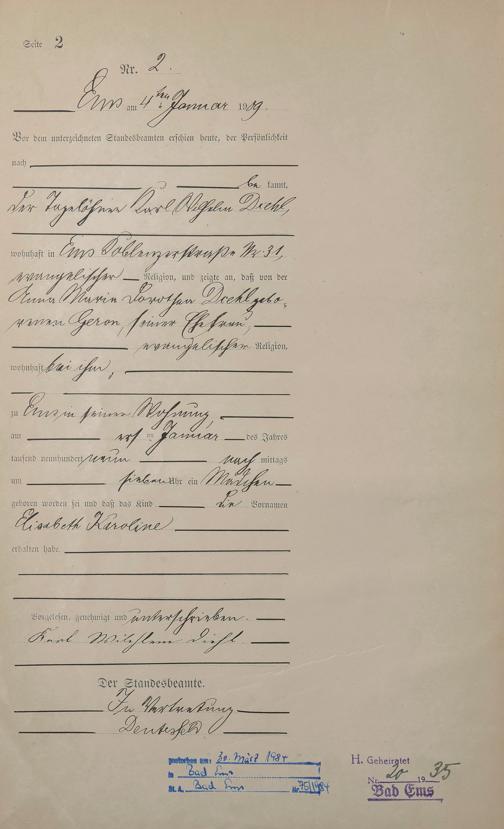 Seite 2
Nr. 2.
Ems am 4ten Januar 1909.
Vor dem unterzeichneten Standesbeamten erschien heute, der Persönlichkeit
nach
be kannt,
der Tagelöhner Karl Wilhelm Diehl,
wohnhaft in Ems Coblenzerstraße Nr. 31,
evangelischer Religion, und zeigte an, daß von der
Anna Marie Dorothea Diehl gebo-
renen Geron, seiner Ehefrau,
evangelischer Religion,
wohnhaft bei ihm,
zu Ems in seiner Wohnung,
am ersten Januar des Jahres
tausend neunhundert neun nach mittags
um sieben Uhr ein Mädchen
geboren worden sei und daß das Kind die Vornamen
Elisabeth Karoline
erhalten habe.
Vorgelesen, genehmigt und unterschrieben.
Karl Wilhlem Diehl.
Der Standesbeamte.
In Vertretung
gestorben am: 30. März 1984
in Bad Ems
St. A. Bad Ems Nr. 75/1984
H. Geheiratet
Nr. 20 1935
Bad Ems